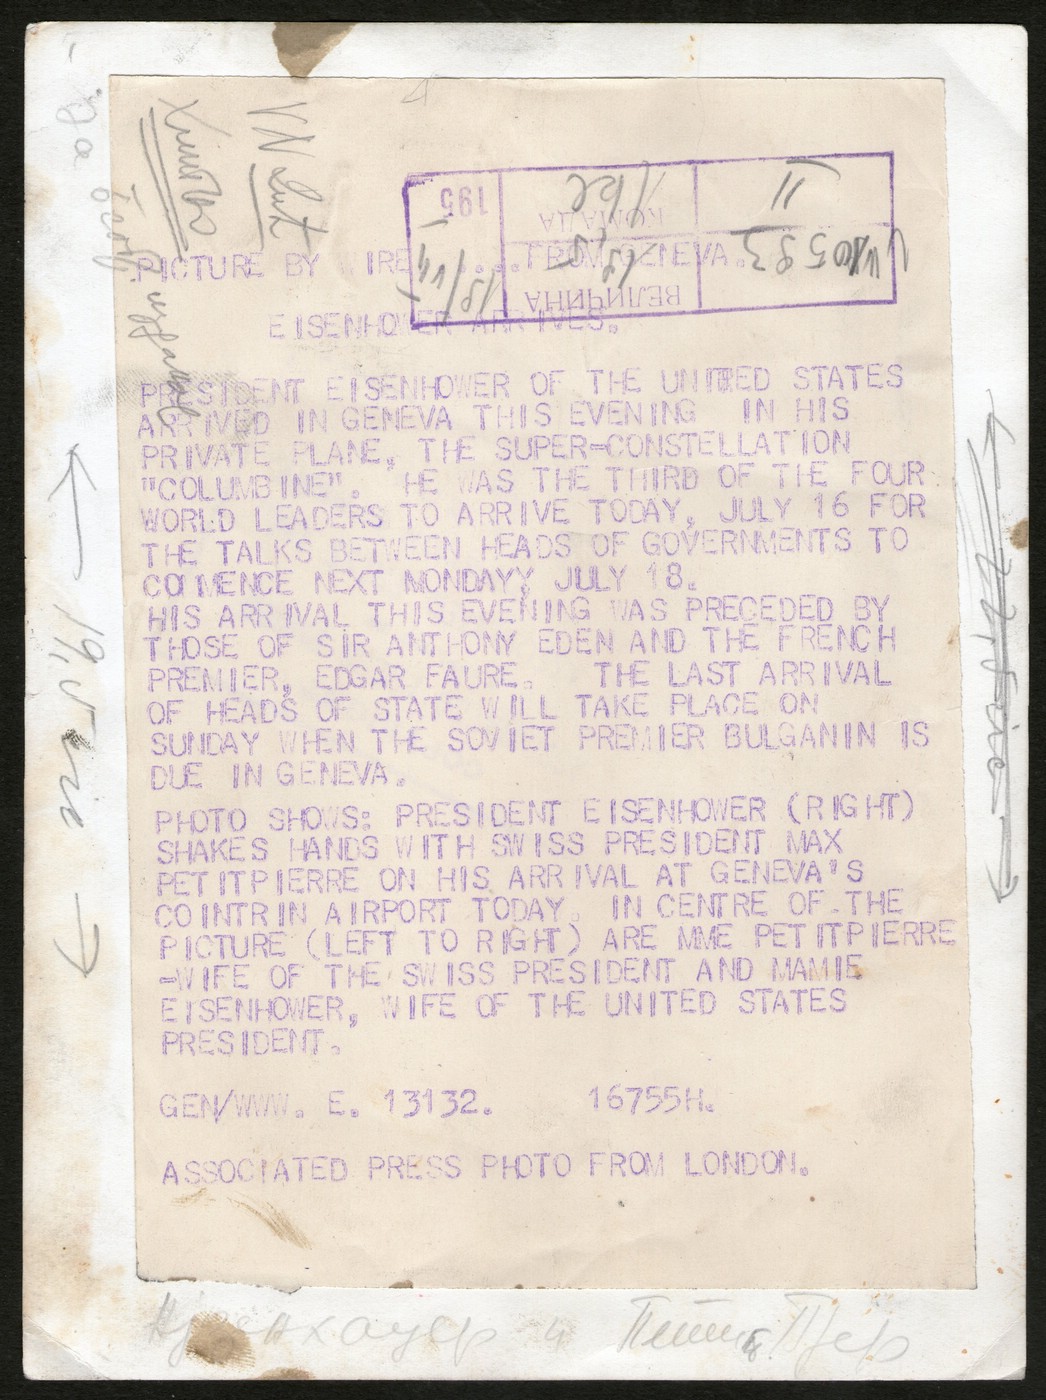 PICTURE BY WIRE .... FROM GENEVA.
EISENHOWER ARRIVES.
PRESIDENT EISENHOWER OF THE UNITED STATES
ARRIVED IN GENEVA THIS EVENING IN HIS
PRIVATE PLANE, THE SUPER=CONSTELLATION
"COLUMBINE". HE WAS THE THIRD OF THE FOUR
WORLD LEADERS TO ARRIVE TODAY, JULY 16 FOR
THE TALKS BETWEEN HEADS OF GOVERNMENTS TO
COMMENCE NEXT MONDAYY JULY 18.
HIS ARRIVAL THIS EVENING WAS PRECEDED BY
THOSE OF SIR ANTHONY EDEN AND THE FRENCH
PREMIER, EDGAR FAURE. THE LAST ARRIVAL
OF HEADS OF STATE WILL TAKE PLACE ON
SUNDAY WHEN THE SOVIET PREMIER BULGANIN IS
DUE IN GENEVA.
PHOTO SHOWS: PRESIDENT EISENHOWER (RIGHT)
SHAKES HANDS WITH SWISS PRESIDENT MAX
PETITPIERRE ON HIS ARRIVAL AT GENEVA'S
COINTRIN AIRPORT TODAY. IN CENTRE OF THE
PICTURE (LEFT TO RIGHT) ARE MME PETITPIERRE
=WIFE OF THE SWISS PRESIDENT AND MAMIE
EISENHOWER, WIFE OF THE UNITED STATES
PRESIDENT.
GEN/WWW. E. 13132. 16755H.
ASSOCIATED PRESS PHOTO FROM LONDON.
ВЕЛИЧИНА
КОМАДА
195
10593
II